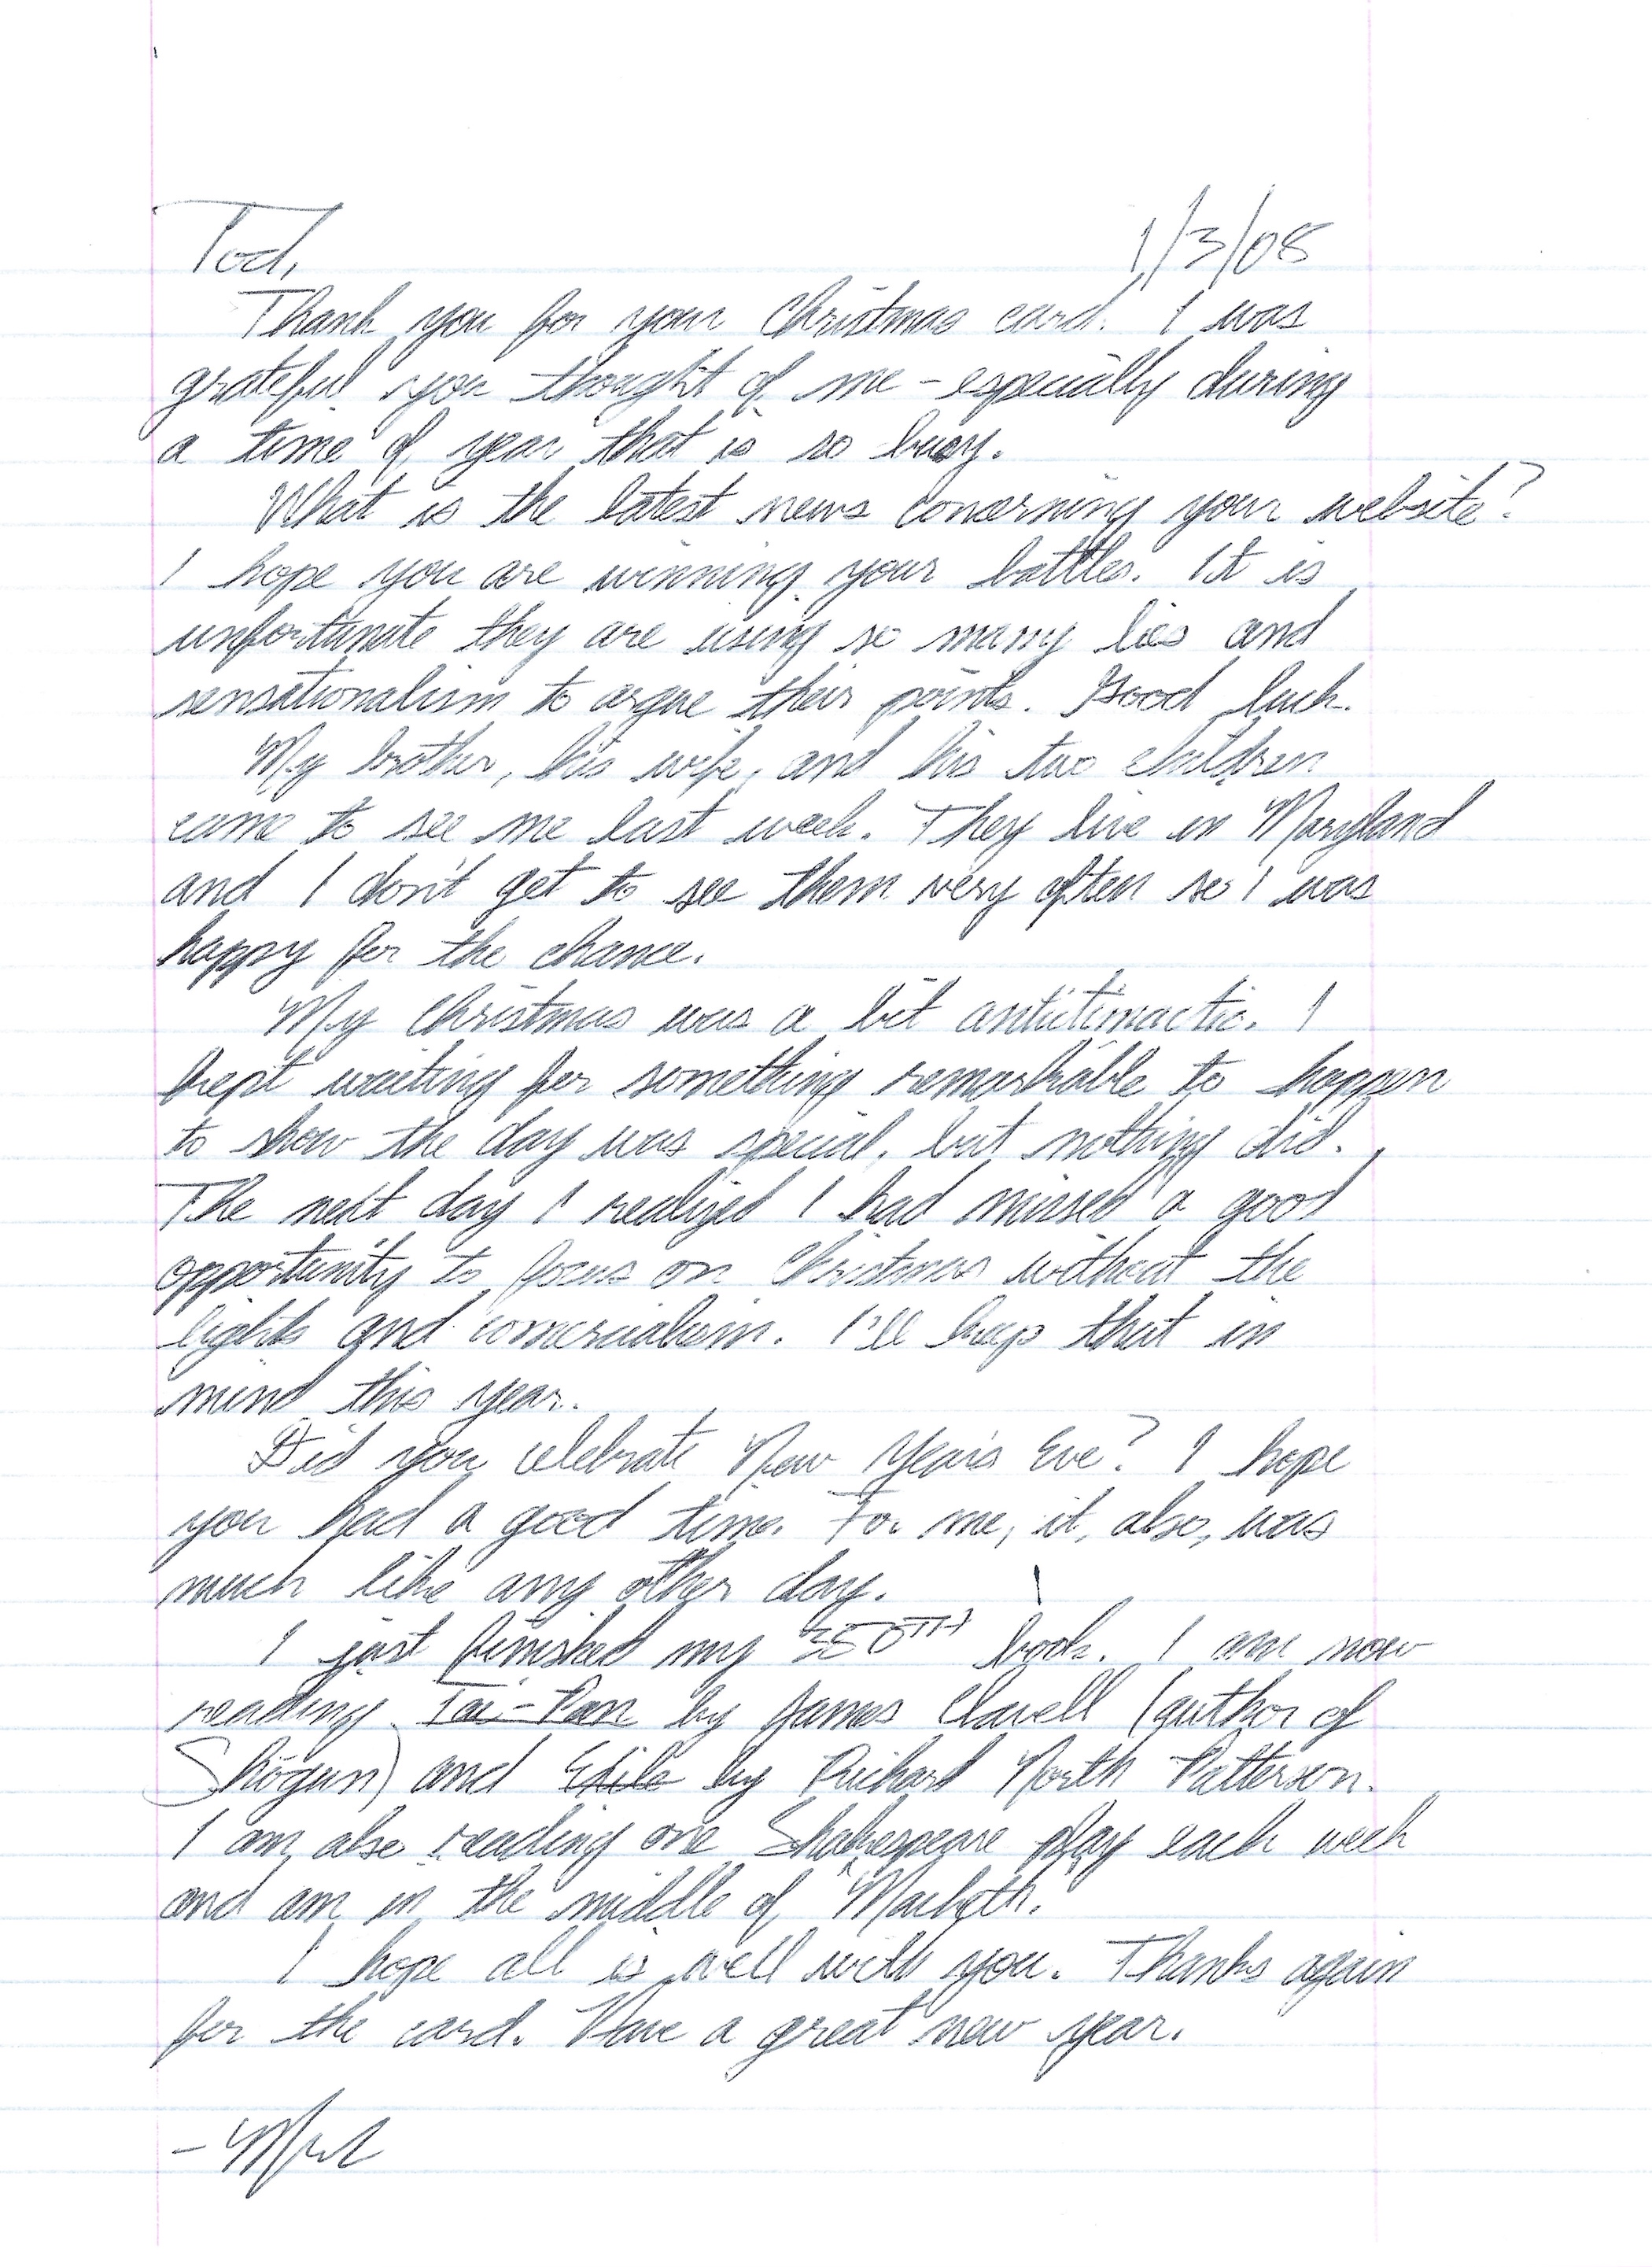 Tod, 1/3/08
Thank you for your Christmas card. I was
grateful you thought of me - especially during
a time of year that is so busy.
What is the latest news concerning your website?
I hope you are winning your battles. It is
unfortunate they are using so many lies and
sensationalism to argue their points. Good luck.
My brother, his wife, and his two children
came to see me last week. They live in Maryland
and I don't get to see them very often so I was
happy for the chance.
My Christmas was a bit anticlimactic. I
kept waiting for something remarkable to happen
to show the day was special, but nothing did.
The next day I realized I had missed a good
opportunity to focus on Christmas without the
lights and comercialism. I'll keep that in
mind this year.
Did you celebrate New Year's Eve? I hope
you had a good time. For me, it, also, was
much like any other day.
I just finished my book. I am now
reading Tai-Pan by James Clavell (author of
Shōgun) and Exile by Richard North Patterson.
I am also reading one Shakespeare play each week
and am in the middle of "Macbeth."
I hope all is well with you. Thanks again
for the card. Have a great new year.